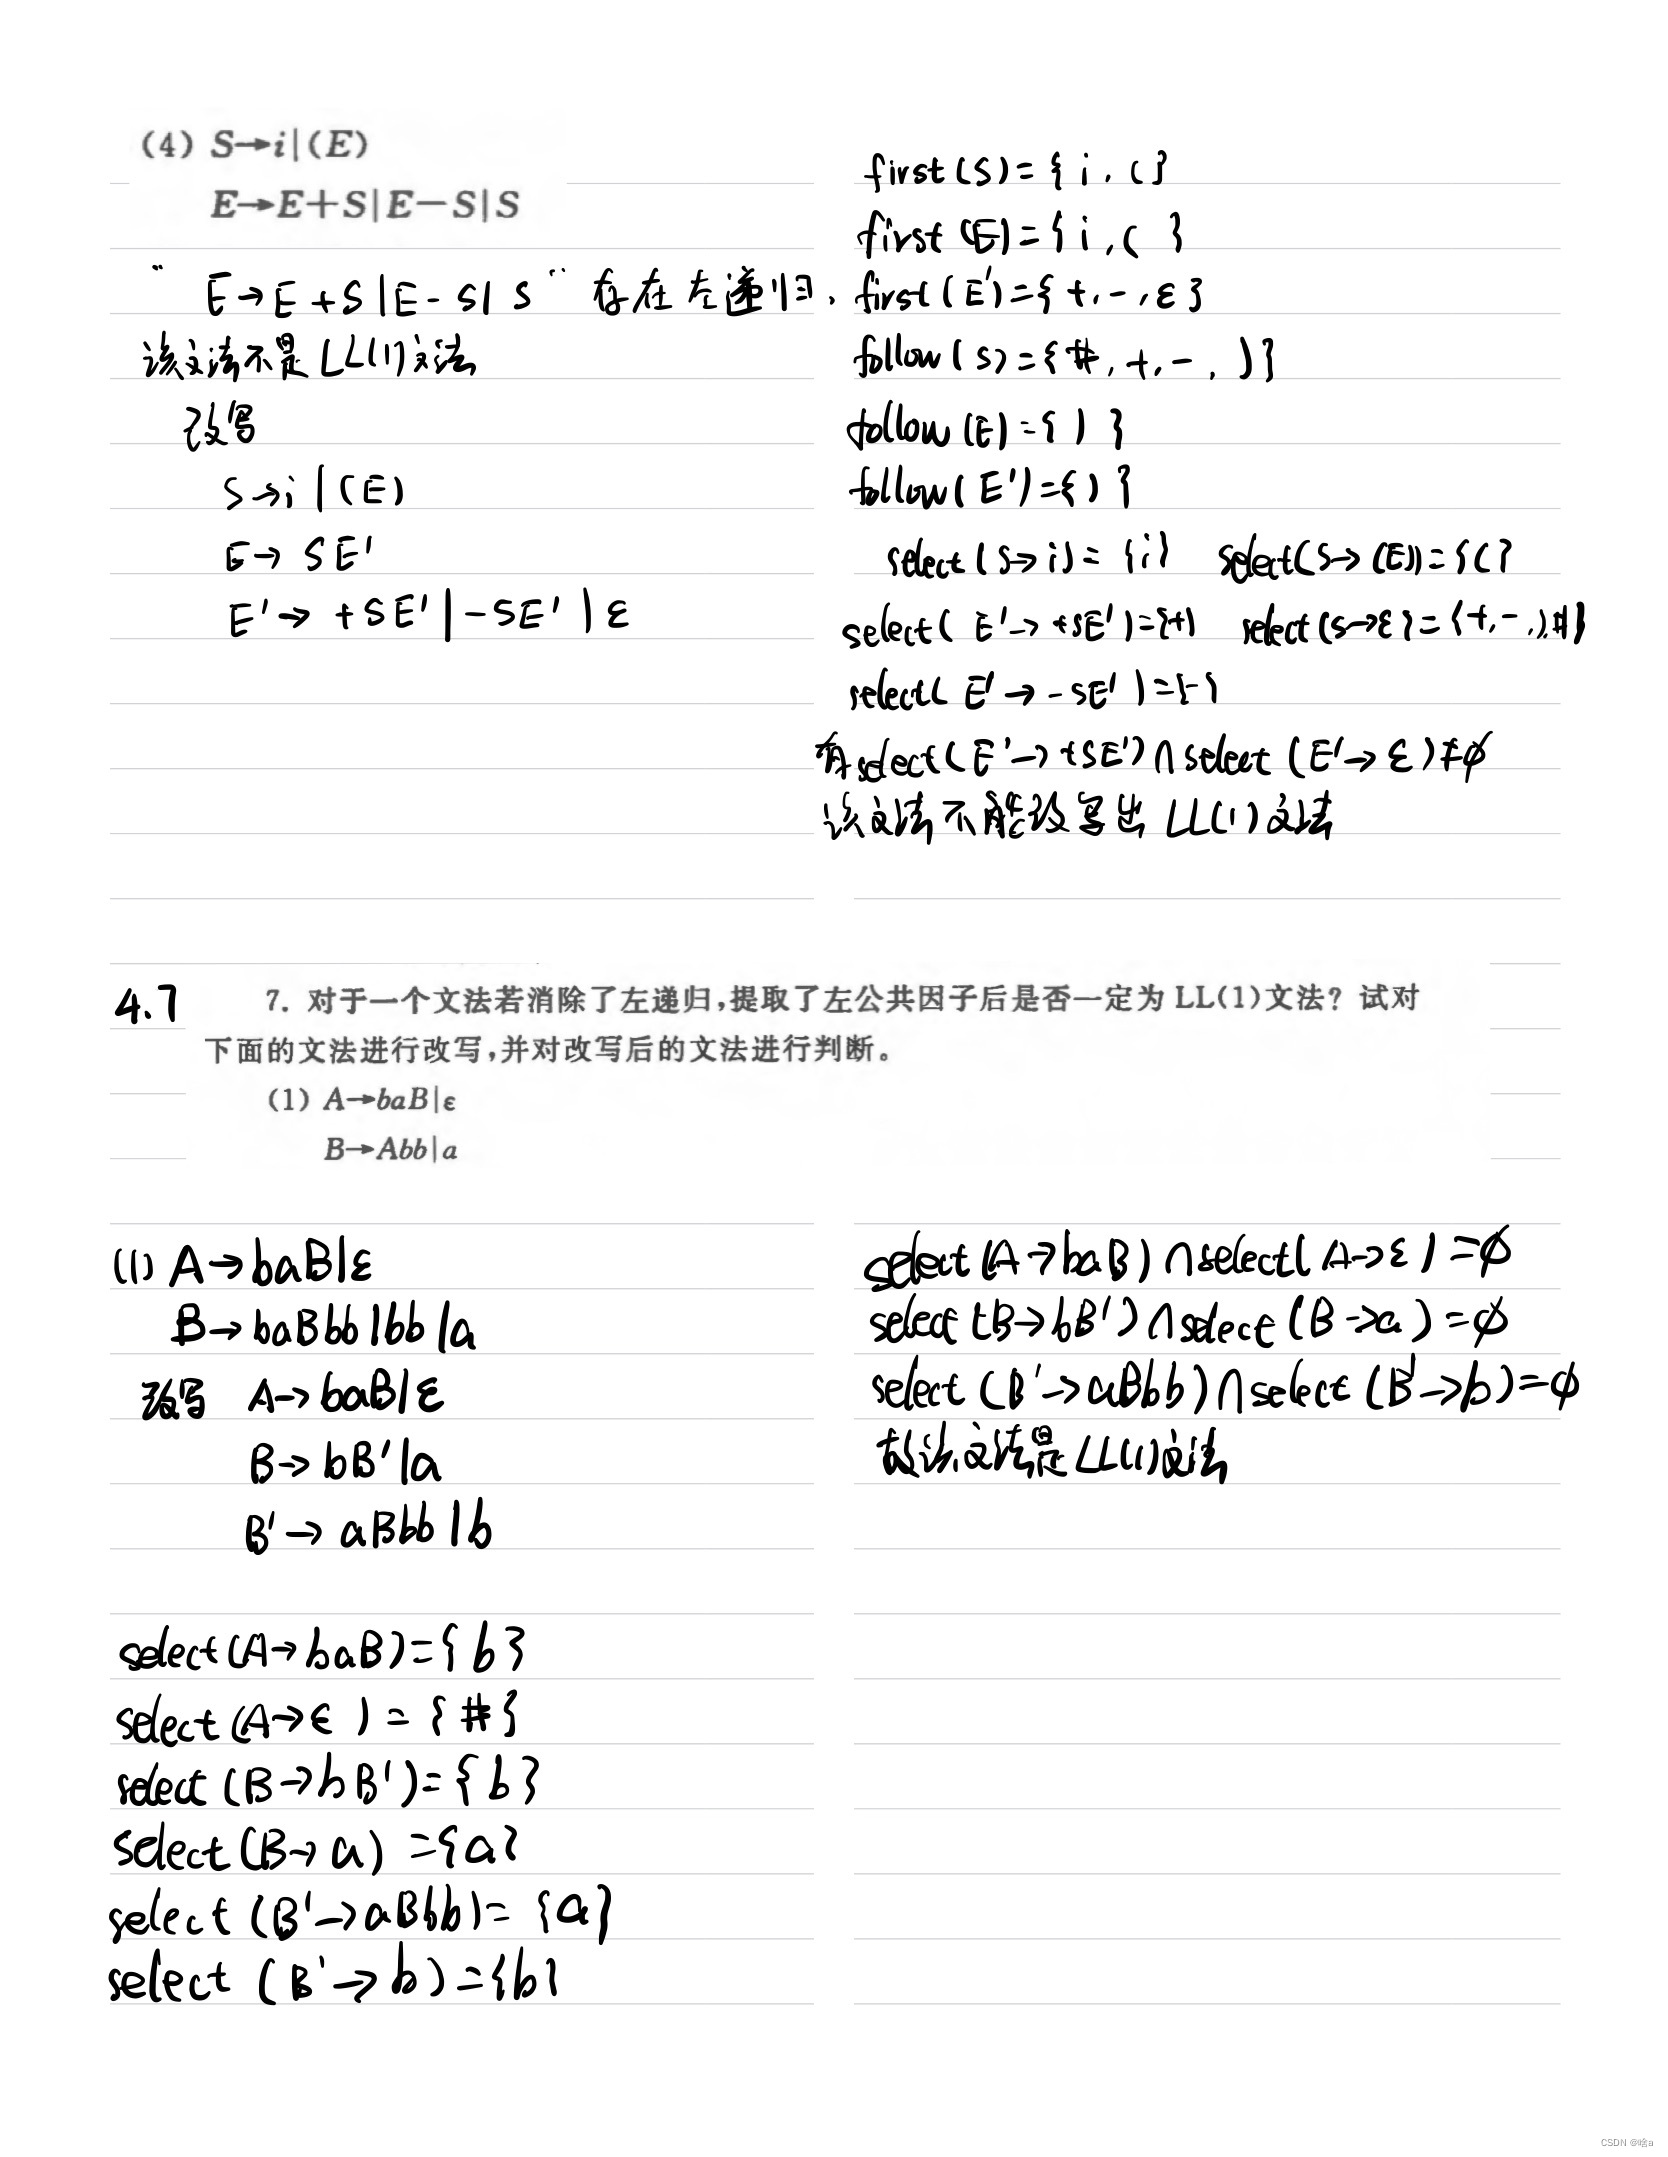 (4) S→i|(E)
E→E+S|E-S|S
" E→E+S|E-S|S " 存在左递归,
该文法不是LL(1)文法
改写
S→i|(E)
E→SE'
E'→+SE'|-SE'|ε
first(S)={i,(}
first(E)={i,( }
first(E')={+,-,ε}
follow(S)={#,+,-,)}
follow(E)={ ) }
follow(E')={)}
select(S→i)={i} select(S→(E))={(}
select(E'→+SE')={+} select(S→ε}={+,-,),#}
select(E'→-SE')={-}
有select(E'→+SE')∩select(E'→ε)≠∅
该文法不能改写出LL(1)文法
4.7 7. 对于一个文法若消除了左递归,提取了左公共因子后是否一定为LL(1)文法? 试对
下面的文法进行改写,并对改写后的文法进行判断。
(1) A→baB|ε
B→Abb|a
(1) A→baB|ε
B→baBbb|bb|a
改写 A→baB|ε
B→bB'|a
B'→aBbb|b
select(A→baB)={b}
select(A→ε)={#}
select(B→bB')={b}
select(B→a)={a}
select(B'→aBbb)={a}
select(B'→b)={b}
select(A→baB)∩select(A→ε)=∅
select(B→bB')∩select(B→a)=∅
select(B'→aBbb)∩select(B'→b)=∅
故该文法是LL(1)文法
CSDN @啥a